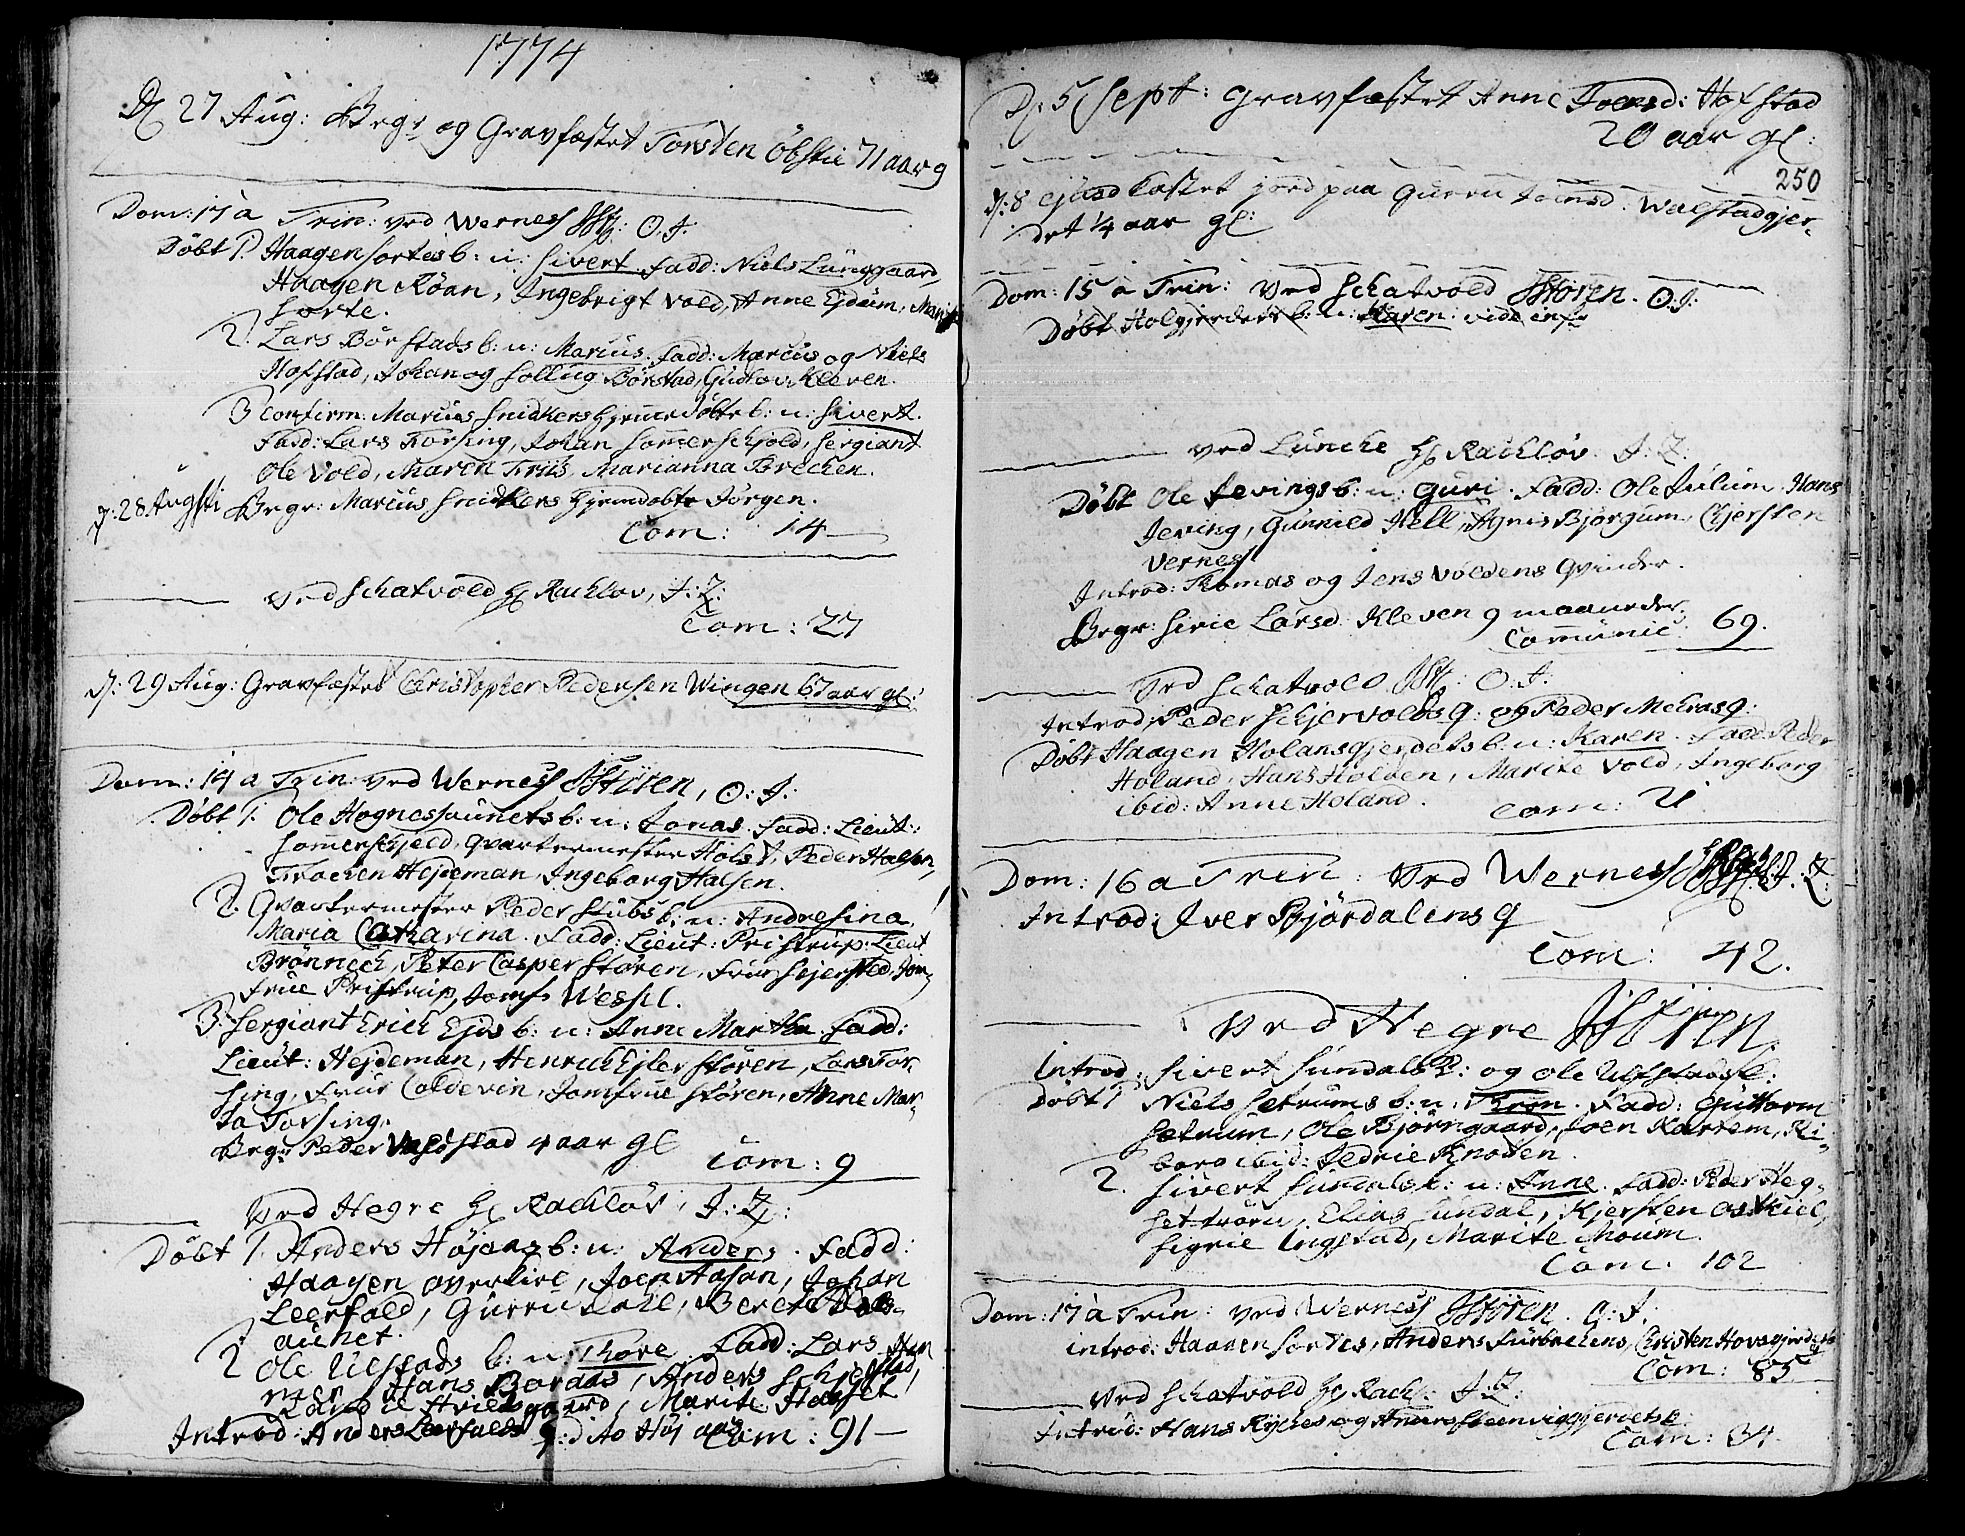 1774
D 27 Aug: Begr: og Gravfæstet Torsten Öbstie 71 aar g
Dom: 13 a Trin: ved Werness O. J.
Döbt 1. Haagen Sortes b: n: Sivert Fadd: Niels Lunggaard,
Haagen Röan, Ingebrigt Vold, Anne Ejdum, Marit
Sorte.
2. Lars Börstads b: n: Marcus. Fadd: Marcus og Niels
Hofstad, Johan og Sollug Börstad, Gudlov Kleven.
3 confirm: Marcus Snidkers hjemmedöbte b: n: Sivert.
Fadd: Lars Torsing, Johan Sommerschjold, Sergiant
Ole Vold, Maren Friis, Marianna Brechen.
D: 28 Augsti Begr: Marcus Snidkers hjemdöbte Jörgen.
Com: 14
Ved Schatvold H Rachlov, J: Z:
Com: 27
D: 29 Aug: Gravfæstet Christopher Pedersen Wingen 67 aar gl:
Dom: 14 a Trin: ved Werness Stören, O: J:
Döbt 1. Ole Hognessaunets b: n: Jonas. Fadd: Lieut:
Sommerschjeld, Qvartermester Holst, Peder Halsen,
Trochen Hejdeman, Ingeborg Halsen.
2. Qvartermester Peder Stubs b: n: Andresina
Maria Catharina. Fadd: Lieut: Pristrup: Lieut
Brönnech, Peter Casper Stören, Frue Hjersted, Jom-
frue Pristrup, Jomf: Wessel.
3. Sergiant Erich Ejds b: n: Anne Martha. Fadd:
Lieut: Hejdeman, Henrich Ejler Stören, Lars Tor-
sing, Frue Coldevin, Jomfrue Stören, Anne Mar-
ta Torsing.
Begr: Peder Valstad 4 aar gl
Com: 9
Ved Hegre H Rachlöv, J: Z:
Döbt 1. Anders Höjens b: n: Anders. Fadd:
Haagen Overlie, Joen Aasan, Johan
Leerfald, Gurru Dahl, Beret
aunet.
2 Ole Ulstads b: n: Thore. Fadd: Lars
Hans Bordas, Anders Schjelstad,
Marite
Introd: Anders Leerfalds q: dito
Com: 91
D: 5 Sept: gravfæstet Anne Joensd: Hofstad
20 aar gl:
250
D: 8 ejusd castet jord paa Gurru Joensd: Walstadgjer-
det 1/4 aar gl:
Dom: 15 a Trin: Ved Schatvold Stören. O: J:
Döbt Holgjerdets b: n: Karen: vide infr
Ved Luncke H Rachlöv. J: Z:
Döbt Ole Jevings b: n: Guri. Fadd: Ole Julum. Hans
Jeving, Gunnild Hell, Agnis Bjorgum, Chjersten
Verness
Introd: Thomas og Jens Voldens qvinder.
Begr: Sirie Larsd Kleven 9 maaneder.
Communic 69.
Ved Schatvold O: J:
Introd: Peder Schjervolds q: og Peder Mehras q:
Döbt Haagen Holansgjerdets b: n: Karen. Fadd: Peder
Holand, Hans Holden, Marite Vold, Ingeborg
ibid: Anne Holand.
Com: 21
Dom: 16 a Trin: Ved Werness J. Z:
Introd: Iver Björdalens q
Com: 42.
Ved Hegre Stören.
Introd: Sivert Sundals q: og Ole Ulstads q:
Döbt 1 Niels Setrums b: n: Thron. Fadd: Guttorm
Setrum, Ole Björngaard, Joen Kartem, Ki-
bora ibid: Jedrie Knoten.
2. Sivert Sundals b: n: Anne. Fadd: Peder Heg-
settrörn, Elias Sundal, Kjersten Oskiel,
Sigrie Ingstad, Marite Moum.
Com. 102
Dom: 17 a Trin: ved Werness Stören. O: J:
introd: Haagen Sortes, Anders Furbachens, Christen Hovsgjerdets
Com: 85
Ved Schatvold H Rach: J. Z:
Introd: Hans Rÿches og Steenviggjerdets q:
Com: 34